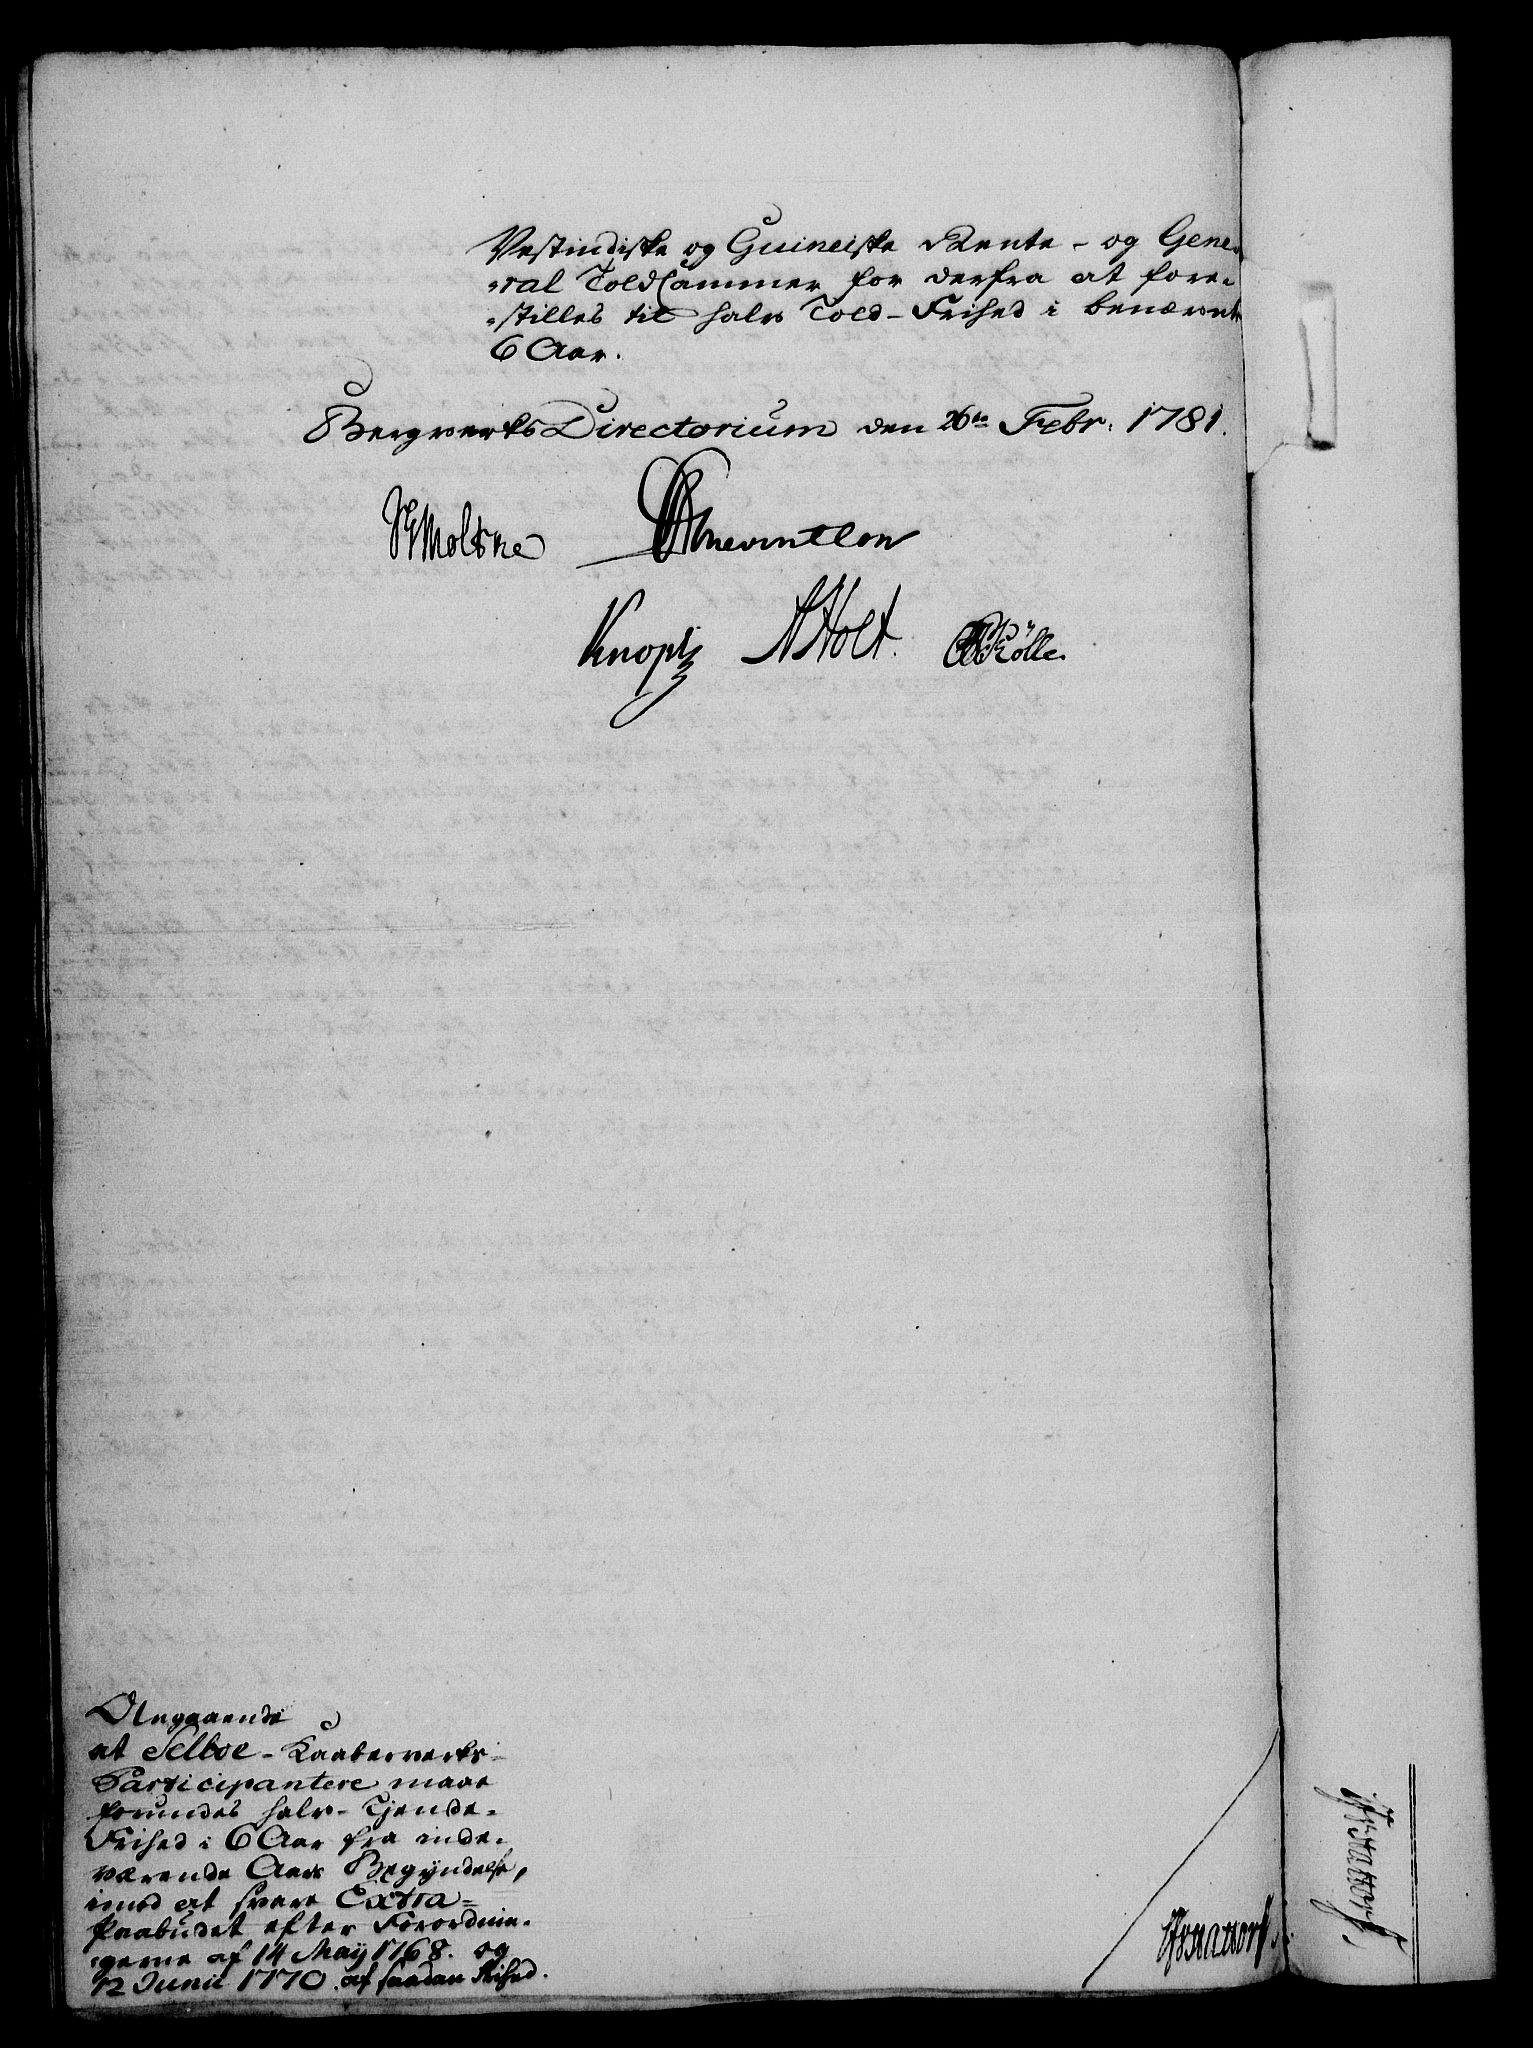 Vestindiske og Guineiske Rente- og Gene-
-ral ToldCammer for derfra at fore-
-stilles til halv Told-Frihed i benævnte
6 Aar.
Bergverks Directorium den 26de Febr: 1781.
Moltke Reventlow
Knoph Holt. Rölle.
Angaaende
at Selboe-Kaaberverks-
Participantere maae
forundes halv-Tjende-
Frihed i 6 Aar fra inde-
værende Aars Begÿndelse,
imod at svare Extra-
Paabudet efter Forordnin-
gerne af 14 Maÿ 1768. og
12 Junii 1770. af saadan Frihed.